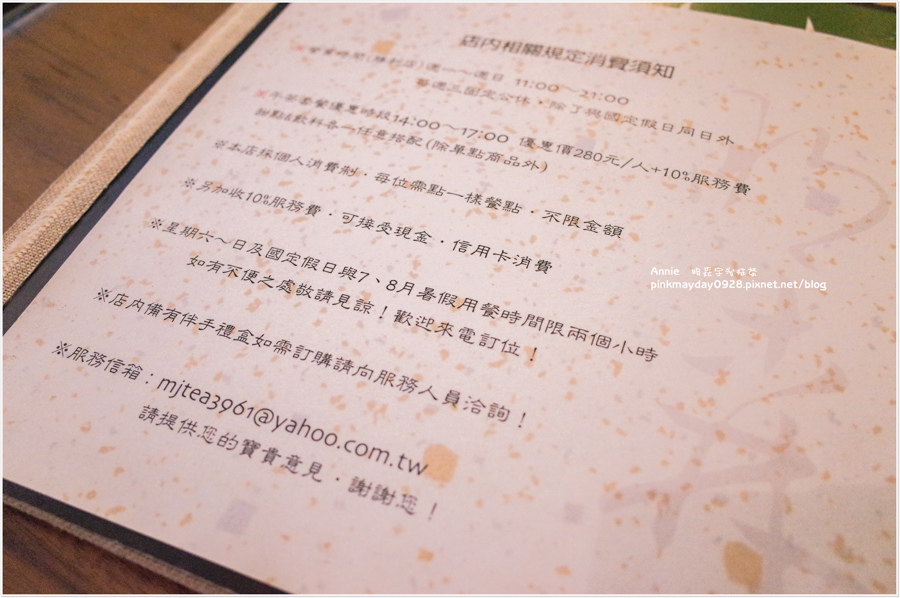 店內相關規定消費須知
※營業時間(勝利店)週一~週日 11:00~21:00
每週三固定公休，除了與國定假日同日外
※午茶套餐優惠時段14:00~17:00 優惠價280元/人+10%服務費
甜點&飲料各一任意搭配(除單點商品外)
※本店採個人消費制，每位需點一樣餐點，不限金額
※另加收10%服務費，可接受現金，信用卡消費
※星期六~日及國定假日與7、8月暑假用餐時間限兩個小時
如有不便之處敬請見諒！歡迎來電訂位！
※店內備有伴手禮盒如需訂購請向服務人員洽詢！
※服務信箱：mjtea3961@yahoo.com.tw
請提供您的寶貴意見，謝謝您！
Annie
pinkmayday0928.pixnet.net/blog